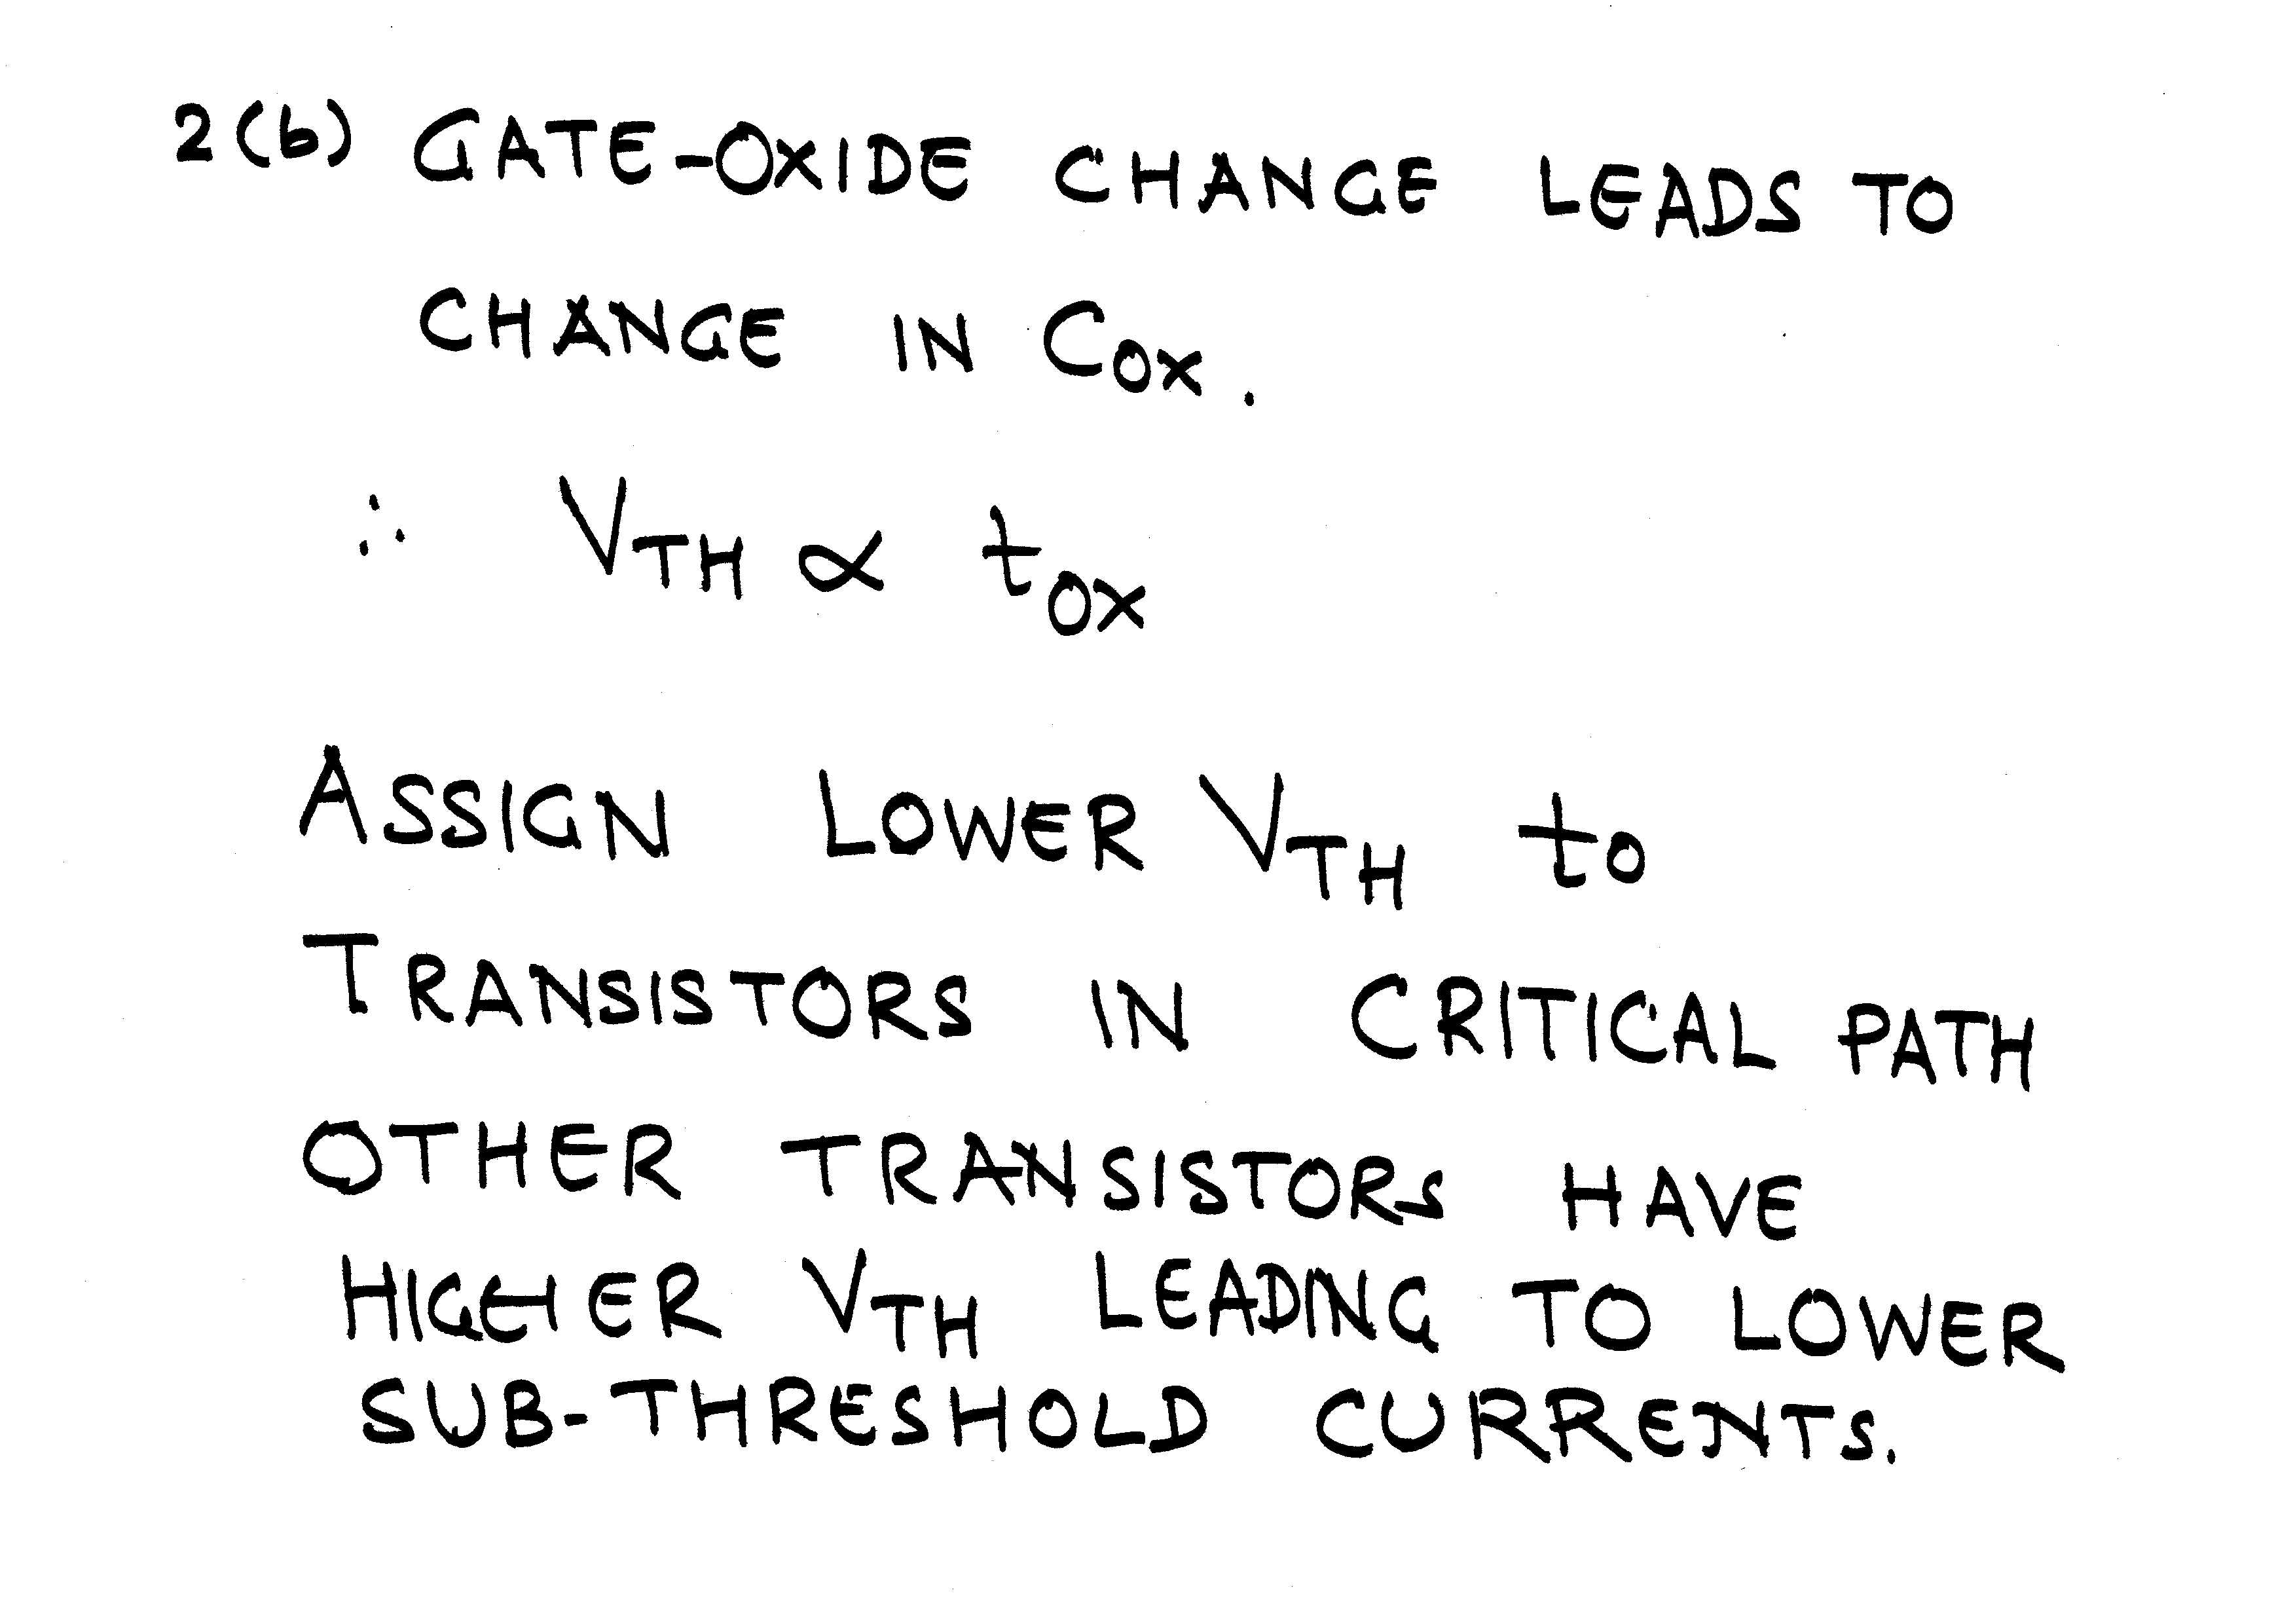 2(b) GATE-OXIDE CHANGE LEADS TO
CHANGE IN COX.
∴ VTH ∝ tOX
ASSIGN LOWER VTH to
TRANSISTORS IN CRITICAL PATH
OTHER TRANSISTORS HAVE
HIGHER VTH LEADING TO LOWER
SUB-THRESHOLD CURRENTS.